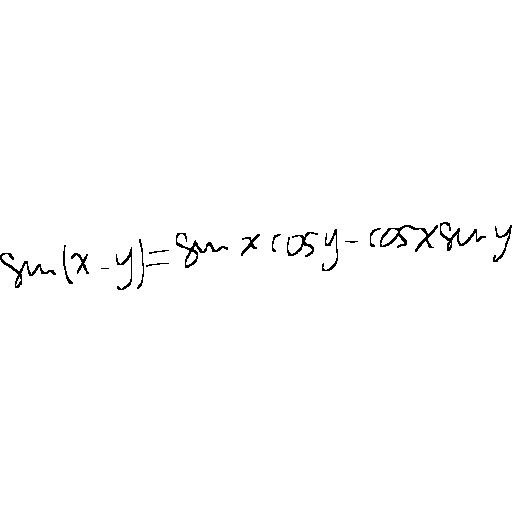 sin(x-y)=sin x cos y - cos x sin y